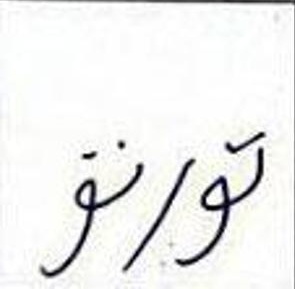 تورنتو